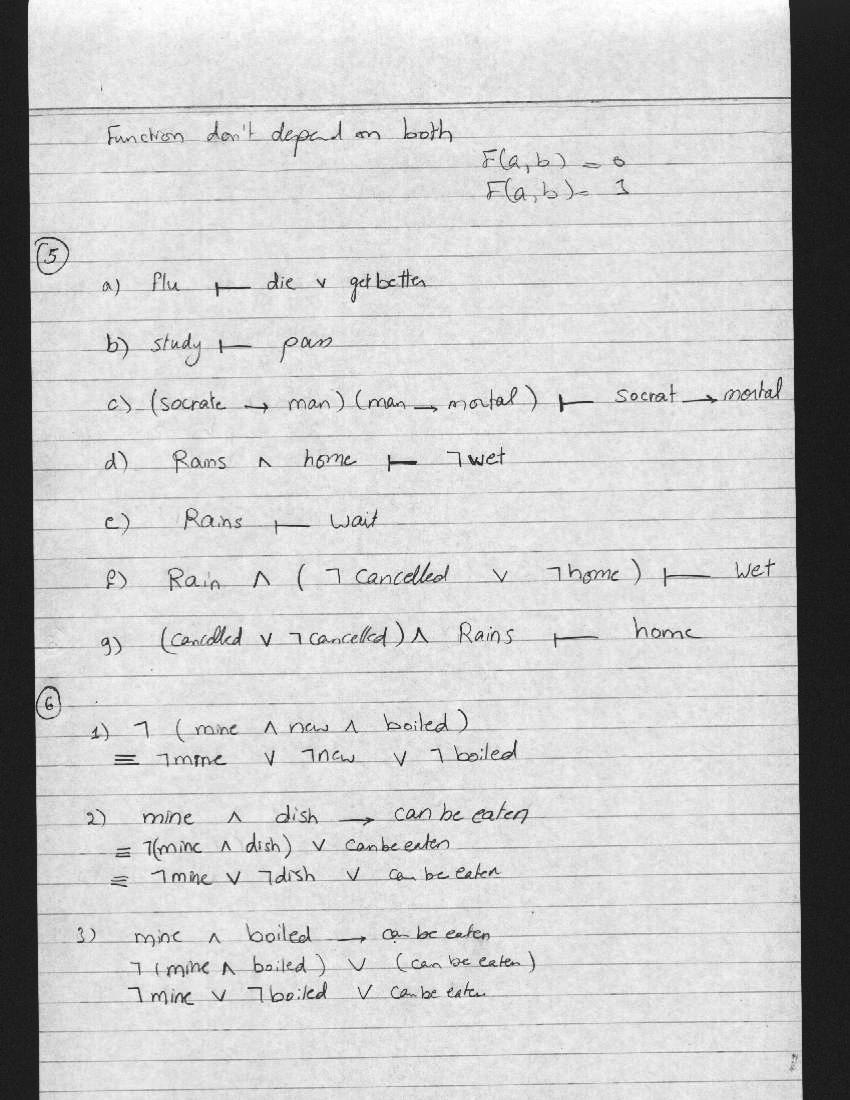 Function don't depend on both
F(a,b) = 0
F(a,b) = 1
5
a) flu ⊢ die ∨ get better
b) study ⊢ pass
c) (socrate → man) (man → mortal) ⊢ socrat → mortal
d) Rains ∧ home ⊢ ¬wet
e) Rains ⊢ Wait
f) Rain ∧ (¬cancelled ∨ ¬home) ⊢ wet
g) (cancelled ∨ ¬cancelled) ∧ Rains ⊢ home
6
1) ¬(mine ∧ new ∧ boiled)
≡ ¬mine ∨ ¬new ∨ ¬boiled
2) mine ∧ dish → can be eaten
≡ ¬(mine ∧ dish) ∨ can be eaten
≡ ¬mine ∨ ¬dish ∨ can be eaten
3) mine ∧ boiled → can be eaten
¬(mine ∧ boiled) ∨ (can be eaten)
¬mine ∨ ¬boiled ∨ can be eaten